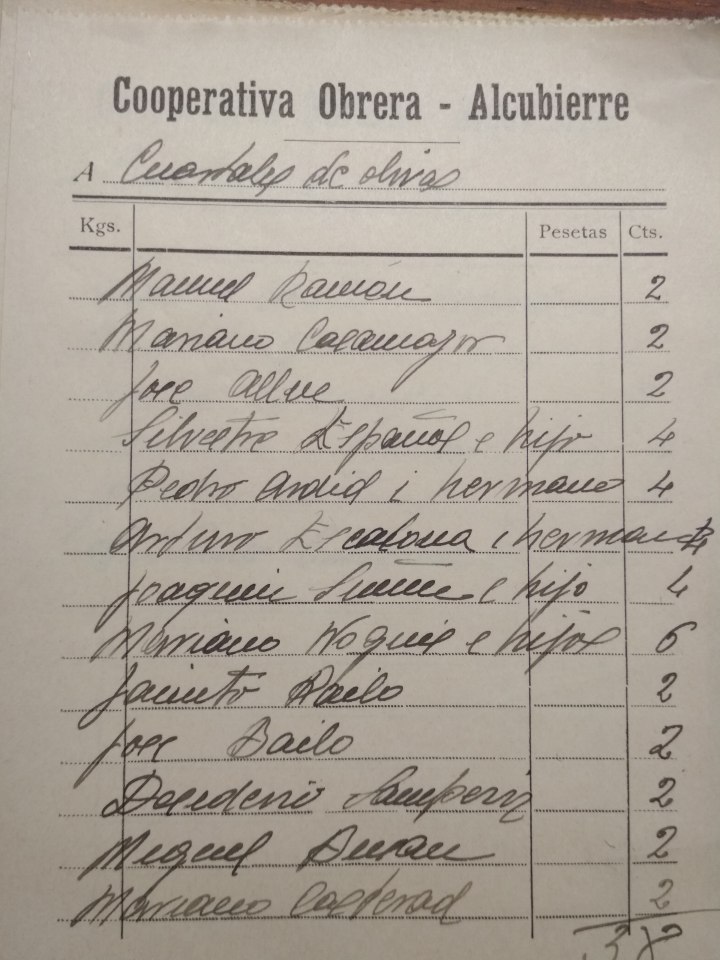 Cooperativa Obrera - Alcubierre
A Cuartales de olivas
Kgs. Pesetas Cts.
Manuel Ramón 2
Mariano Casamayor 2
Jose Allue 2
Silvestre Español e hijo 4
Pedro Ardid i hermano 4
Arturo Escalona i hermano 4
Joaquin e hijo 4
Mariano Nogués e hijos 6
Jacinto Bailo 2
Jose Bailo 2
Desiderio Samperiz 2
Miguel Duran 2
Mariano 2
38